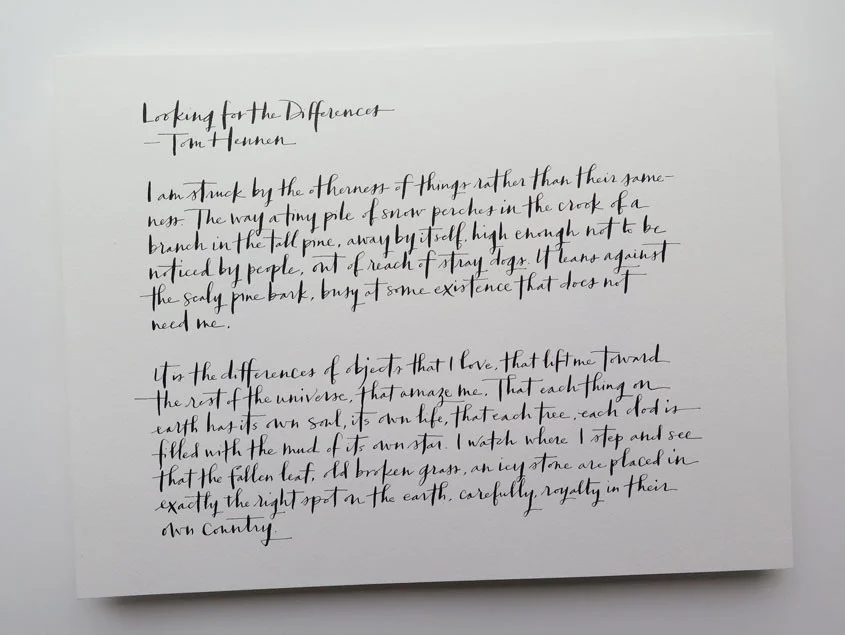 Looking for the Differences
- Tom Hennen
I am struck by the otherness of things rather than their same-
ness. The way a tiny pile of snow perches in the crook of a
branch in the tall pine, away by itself, high enough not to be
noticed by people, out of reach of stray dogs. It leans against
the scaly pine bark, busy at some existence that does not
need me.
It is the differences of objects that I love, that lift me toward
the rest of the universe, that amaze me. That each thing on
earth has its own soul, its own life, that each tree, each clod is
filled with the mud of its own star. I watch where I step and see
that the fallen leaf, old broken grass, an icy stone are placed in
exactly the right spot on the earth, carefully, royalty in their
own country.